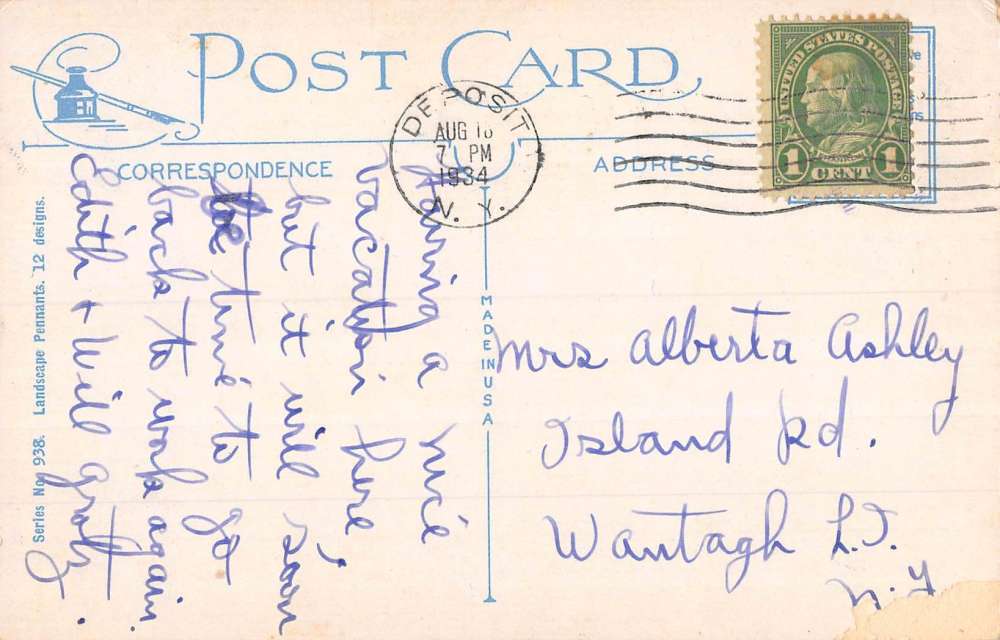 POST CARD
CORRESPONDENCE
ADDRESS
DEPOSIT
AUG 16
7 PM
1934
N. Y.
UNITED STATES POSTAGE
1 1
CENT
FRANKLIN
Having a nice
vacation here
but it will soon
be time to go
back to work again
Edith + Will
MADE IN USA
Series No. 938. Landscape Pennants. 12 designs.
Mrs Alberta Ashley
Island Rd.
Wantagh L.I.
N.Y